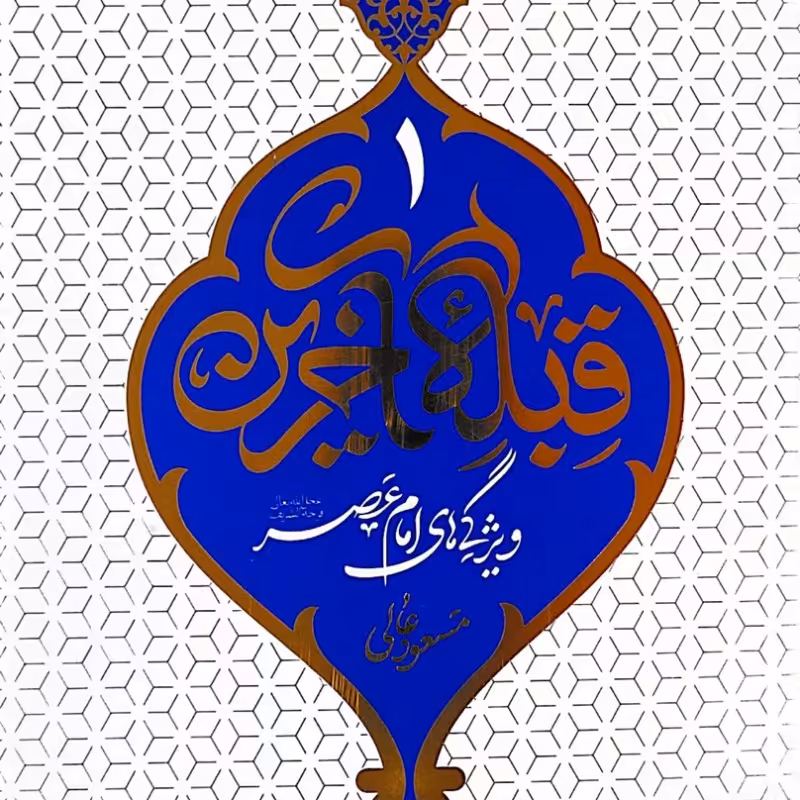 ۱
قبلهٔ آخرین
ویژگی‌های امام عصر
عجل الله تعالی
فرجه الشریف
مسعود عالی